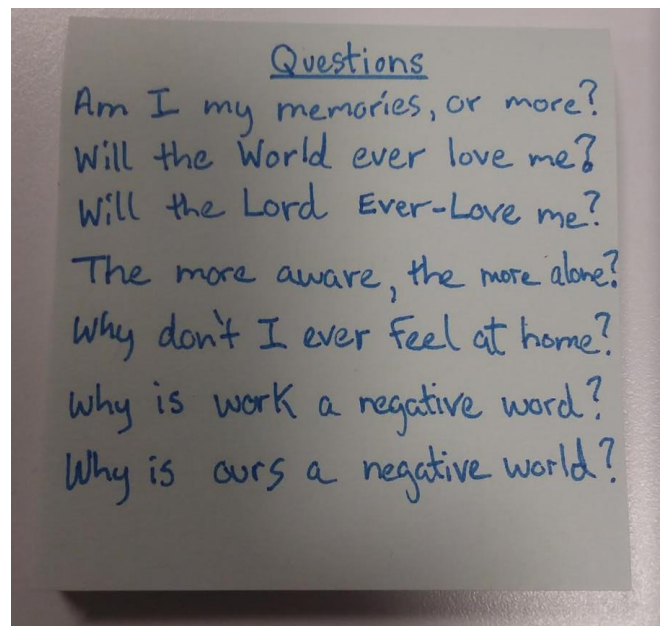 Questions
Am I my memories, or more?
Will the World ever love me?
Will the Lord Ever-Love me?
The more aware, the more alone?
Why don't I ever feel at home?
Why is work a negative word?
Why is ours a negative world?